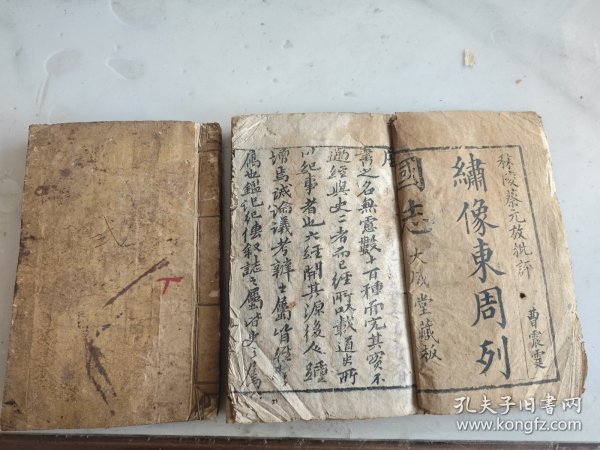 秣陵蔡元放批評
繡像東周列
國志
大成堂藏板
曹震雯
書之名無慮數十百種而究其實不
過經與史二者而已經所以載道史所
以紀事者也六經開其源後人踵
增焉訓誡論議考辨之屬皆經之
屬也鑑記紀傳敘誌之屬皆史之屬
孔夫子旧书网
www.kongfz.com